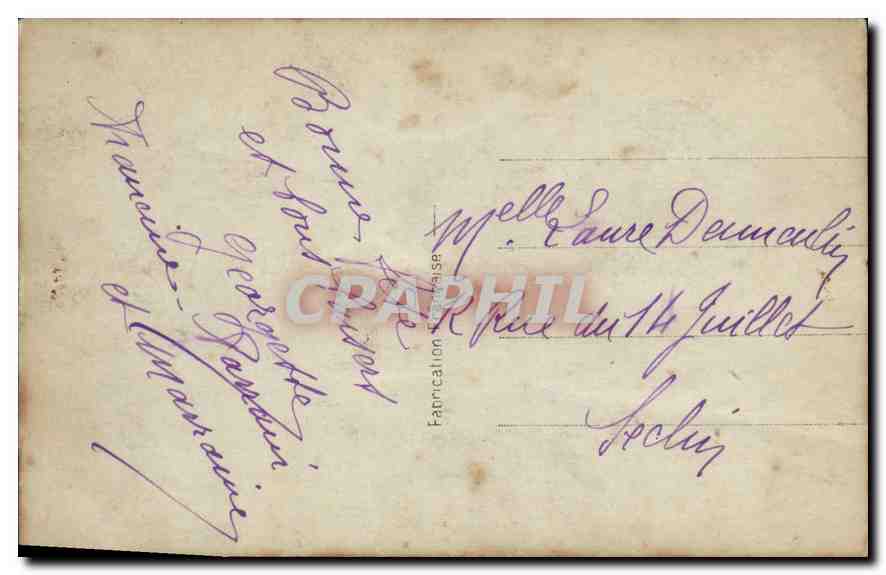 Bonne Fête
et bons baisers
Georgette
Parrain
Francine
et Marraine
Fabrication Française
Melle Laure Demoulin
R Rue du 14 Juillet
Seclin
CPARPHIL